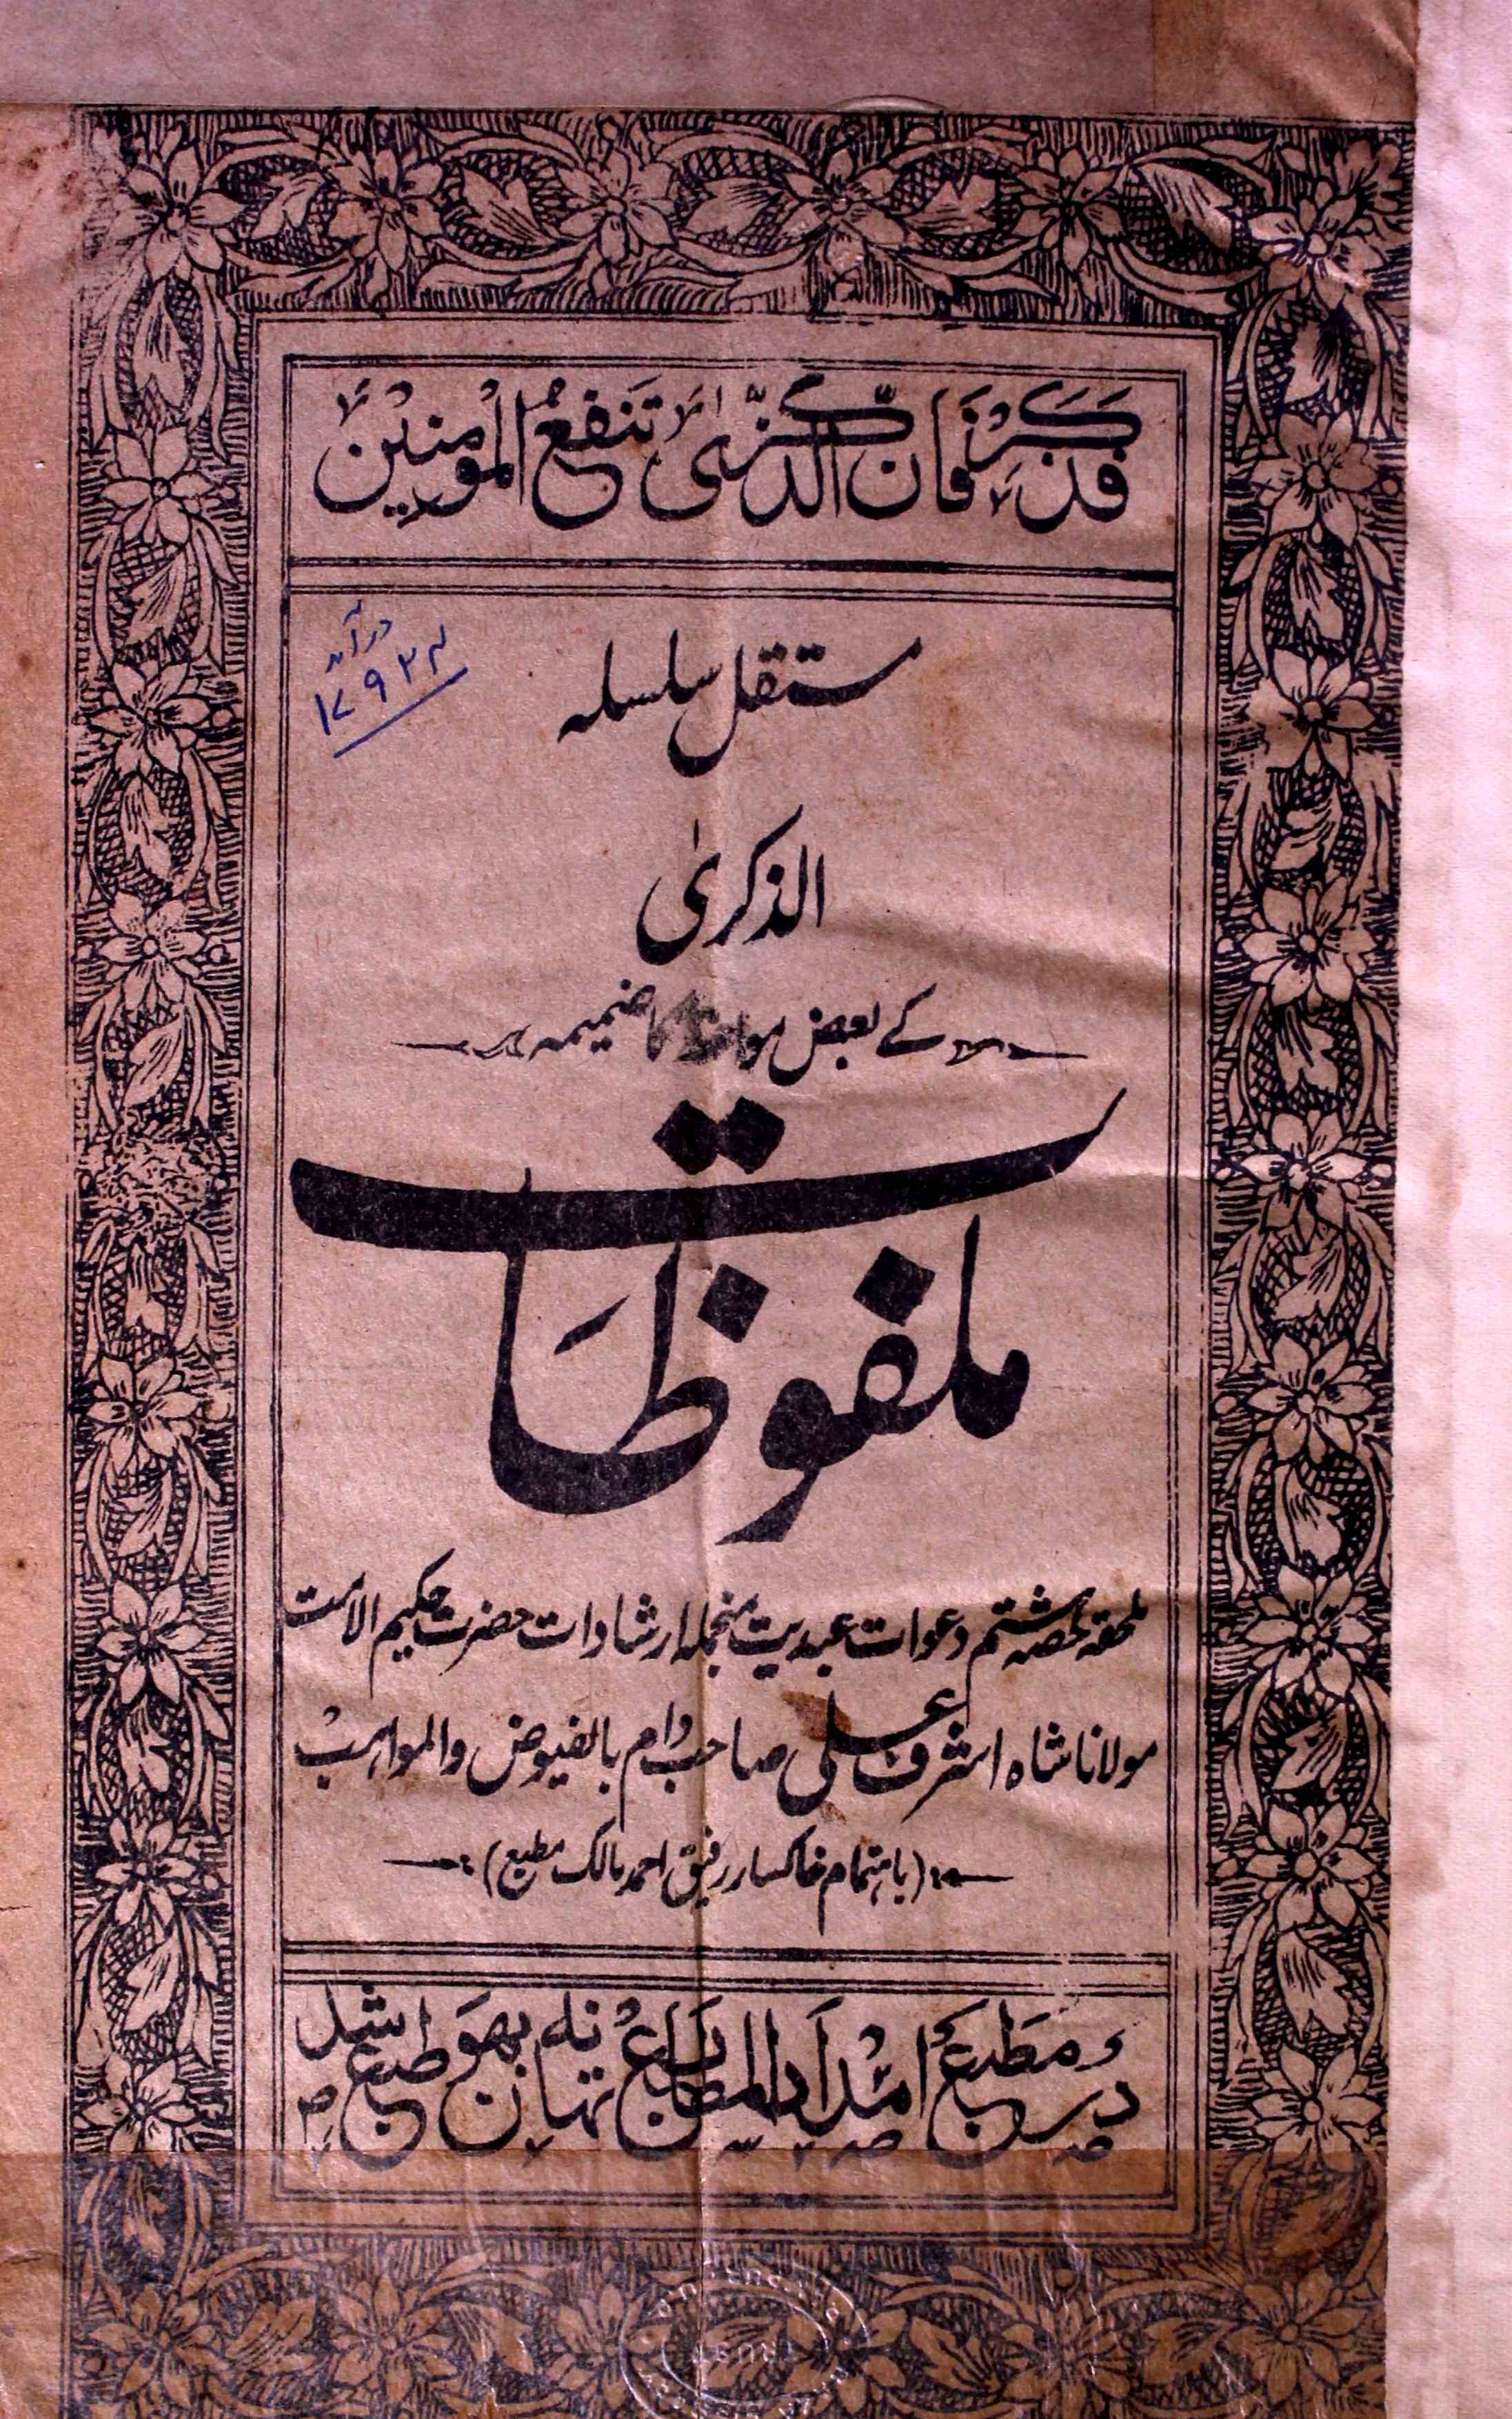 فَذَكِّرْ فَاِنَّ الذِّكْرٰی تَنْفَعُ الْمُؤْمِنِیْنَ
درآمد
۱۷۹۲۴
مستقل سلسلہ
الذکریٰ
کے بعض مواعظ کا ضمیمہ
ملفوظات
ملحقہ حصہ ہشتم دعوات عبدیت منجملہ ارشادات حضرت حکیم الامت
مولانا شاہ اشرف علی صاحب دام بالفیوض والمواہب
(باہتمام خاکسار رفیق احمد مالک مطبع)
در مطبع امداد المطابع تھانہ بھون طبع شد